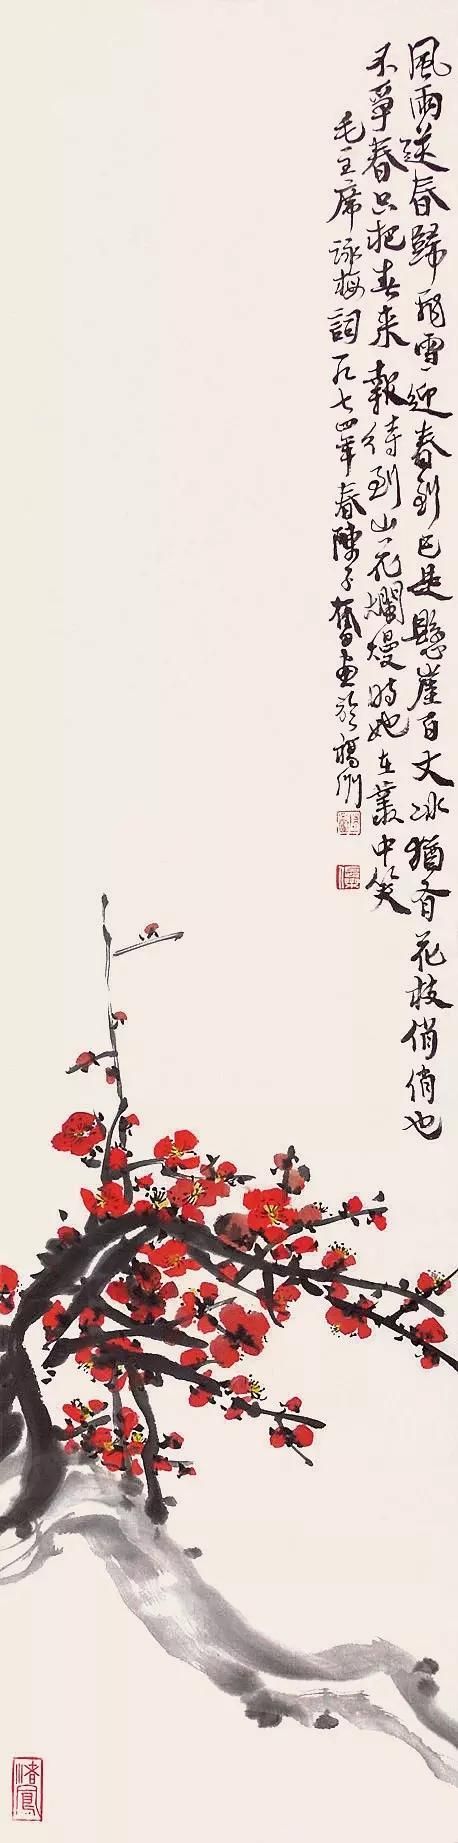 風雨送春歸飛雪迎春到已是懸崖百丈冰猶有花枝俏俏也
不爭春只把春來報待到山花爛熳時她在叢中笑
毛主席詠梅詞一九七四年春陳子奮畫於福州